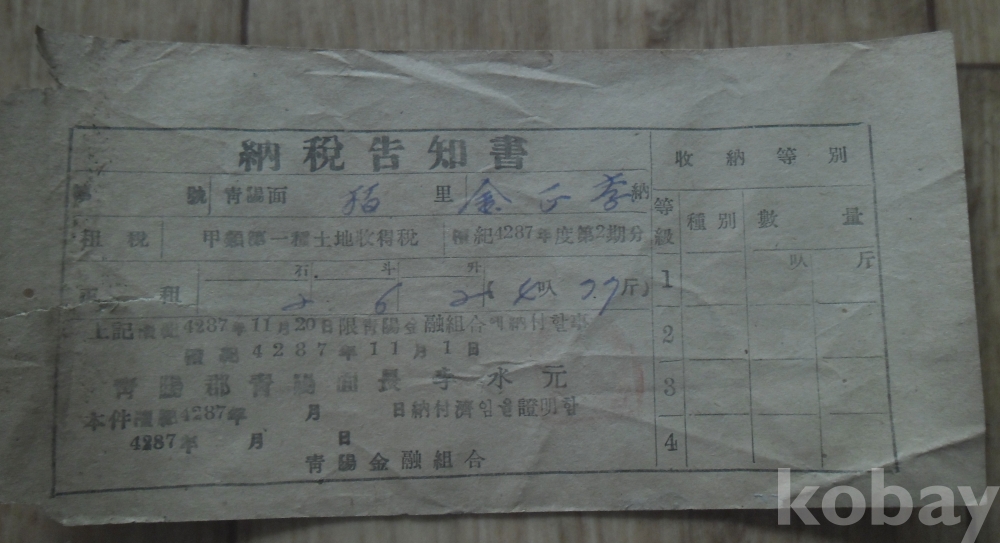 納稅告知書
號 靑陽面 里 金 納
租稅 甲類第一種土地收得稅 檀紀4287年度第2期分
石 斗 升
租 2 6 2 (4叺 77斤)
上記檀紀4287年11月20日限靑陽金融組合에納付할事
檀紀4287年11月1日
靑陽郡靑陽面長 李水元
本件檀紀4287年 月 日納付濟임을證明함
4287年 月 日
靑陽金融組合
收納等別
等級 種別 數量
1 叺 斤
2
3
4
kobay